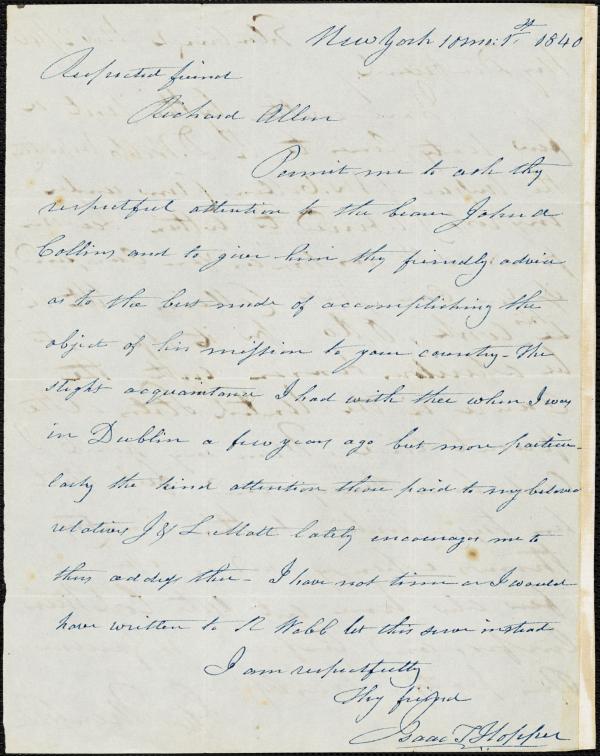 New York 10 mo: 1st 1840
Respected friend
Richard Allen
Permit me to ask thy
respectful attention to the bearer John A
Collins and to give him thy friendly advice
as to the best mode of accomplishing the
object of his mission to your country - The
slight acquaintance I had with thee when I was
in Dublin a few years ago but more particu-
larly the kind attention thou paid to my beloved
relatives J & L Mott lately encourages me to
thus address thee - I have not time or I would
have written to R Webb let this serve instead
I am respectfully
Thy friend
Isaac T Hopper